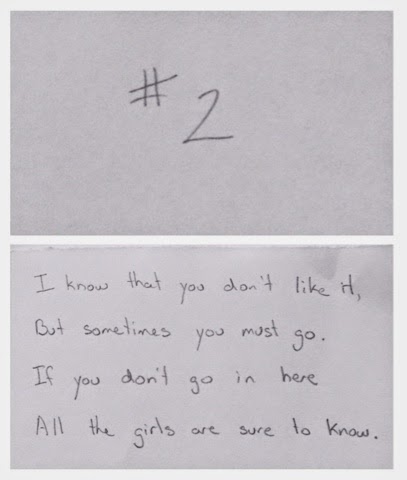 #2
I know that you don't like it,
But sometimes you must go.
If you don't go in here
All the girls are sure to know.